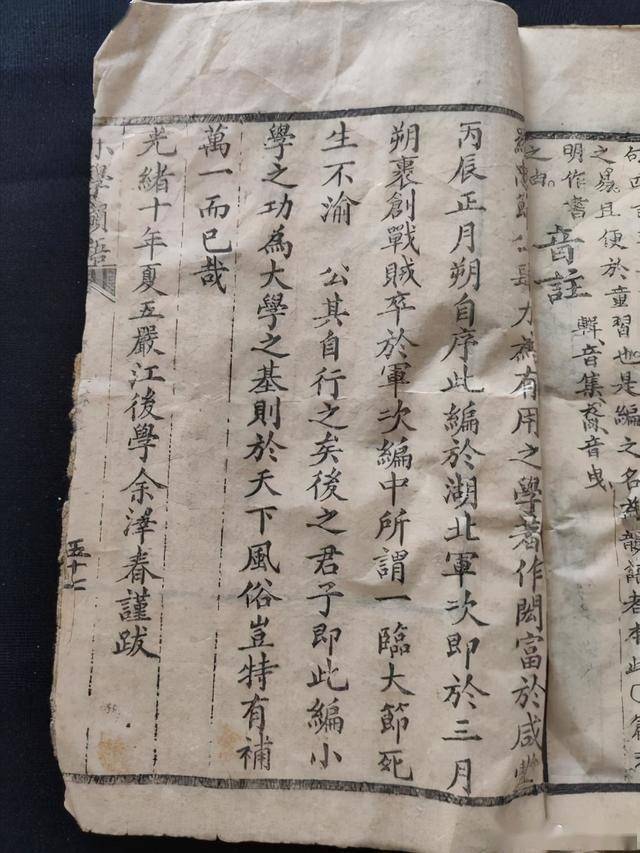 之易且便於童習也是編之名韻語者本此〇篇
明作書
之由。
音註
輯音集裔音曳
節公長才為有用之學著作閎富於咸豐
丙辰正月朔自序此編於湖北軍次即於三月
朔裹創戰賊卒於軍次編中所謂一臨大節死
生不渝　公其自行之矣後之君子即此編小
學之功為大學之基則於天下風俗豈特有補
萬一而已哉
光緒十年夏五嚴江後學余澤春謹跋
小學韻語
五十七